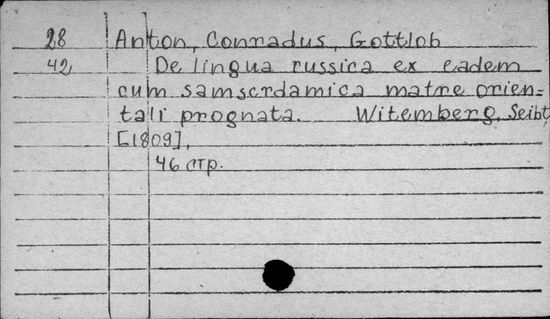 28 Anton, Conradus, Gottlob
42 De lingua russica ex eadem
cum samscrdamica matre orien=
tali prognata. Witemberg, Seibt,
[1809],
46 стр.